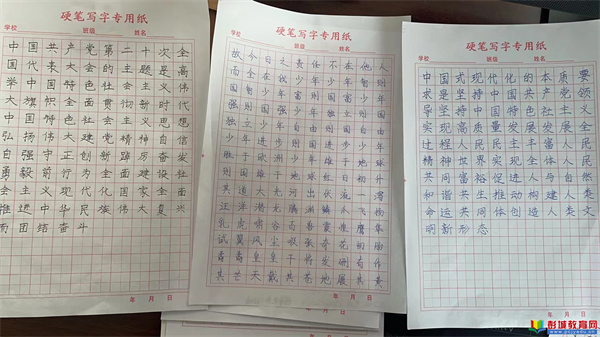 硬笔写字专用纸
学校 班级 姓名
中国共产党第二十次全
国代表大会的主题是高
举中国特色社会主义伟
大旗帜全面贯彻新时代
中国特色社会主义思想
弘扬伟大建党精神自信
自强守正创新踔厉奋发
勇毅前行为全面建设社
会主义现代化国家全面
推进中华民族伟大复兴
而团结奋斗
年 月 日
硬笔写字专用纸
学校 班级 姓名
故今日之责任不在他人
而全在我少年少年智则
国智少年富则国富少年
强则国强少年独立则国
独立少年自由则国自由
少年进步则国进步少年
则国雄于地球红日初升
其道大光河出伏流一泻
汪洋潜龙腾渊鳞爪飞扬
乳虎啸谷百兽震惶鹰隼
试翼风尘吸张奇花初胎
矞矞皇皇干将发硎有作
其芒天戴其苍地履其黄
年 月 日
硬笔写字专用纸
学校 班级 姓名
中国式现代化的本质要
求是坚持中国共产党领
导坚持中国特色社会主义
实现高质量发展发展全
过程人民民主丰富人民
精神世界实现全体人民
共同富裕促进人与自然
和谐共生推动构建人类
命运共同体创造人类文
明新形态
年 月 日
彭城教育网